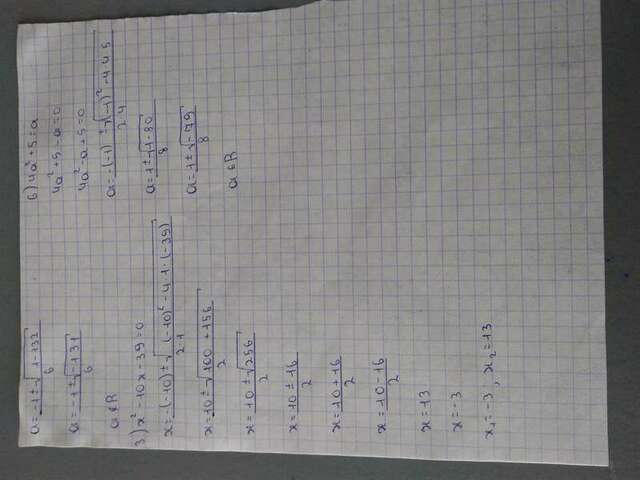 a = -1±√1-132 / 6
a = -1±√-131 / 6
a∉R
3.) x² - 10x - 39 = 0
x = -(-10)±√(-10)² - 4·1·(-39) / 2·1
x = 10±√100+156 / 2
x = 10±√256 / 2
x = 10±16 / 2
x = 10+16 / 2
x = 10-16 / 2
x = 13
x = -3
x₁ = -3, x₂ = 13
6) 4a² + 5 = a
4a² + 5 - a = 0
4a² - a + 5 = 0
a = -(-1)±√(-1)² - 4·4·5 / 2·4
a = 1±√1-80 / 8
a = 1±√-79 / 8
a∉R